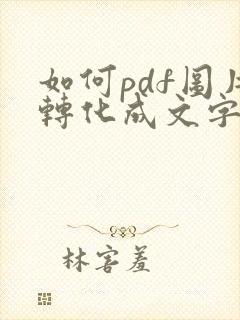 如何pdf圖片
轉化成文字
林害羞